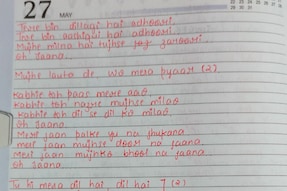 27 MAY
Tere bin dillagi hai adhoori.
Tere bin aashiqui hai adhoori.
Mujhe milna hai tujhse jaroori.
Oh Jaana.
Mujhe lauta de wo mera pyaar (2)
Kabhie toh paas mere aao.
Kabhie toh nazre mujhse milao
Kabhie toh dil se dil ko milao.
Oh Jaana.
Meri jaan palke yu na jhukana
meri jaan mujhse door na jaana.
Meri jaan mujhko bhool na jaana
Oh Jaana.
Tu hi mera dil hai, dil hai (2)